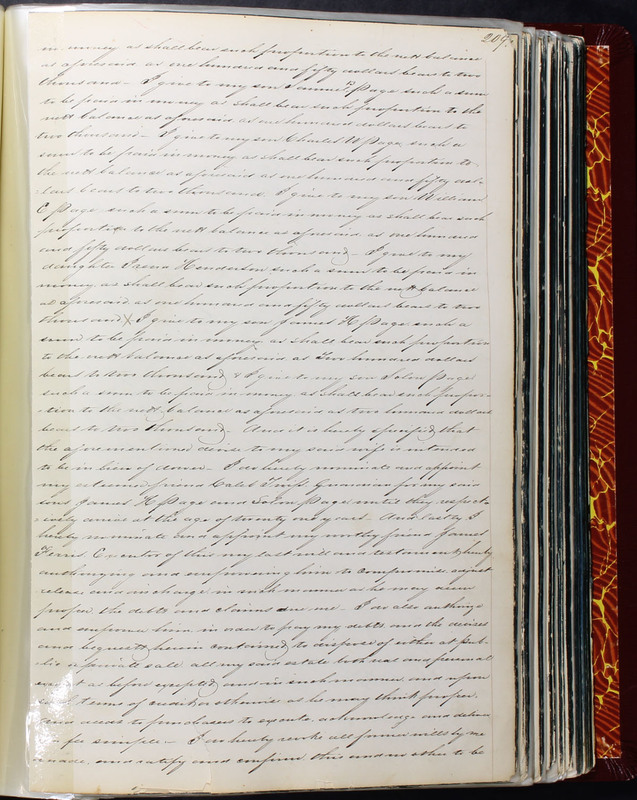 209
in money as shall bear such proportion to the nett balance
as aforesaid as one hundred and fifty dollars bear to two
thousand - I give to my son Samuel P. Page such a sum
to be paid in money as shall bear such proportion to the
nett balance as aforesaid as one hundred dollars bears to
two thousand - I give to my son Charles W Page, such a
sum to be paid in money as shall bear such proportion to
the nett balance as aforesaid as one hundred and fifty dol-
-lars bears to two thousand. I give to my son William
C. Page such a sum to be paid in money as shall bear such
proportion to the nett balance as aforesaid, as one hundred
and fifty dollars bear to two thousand - I give to my
daughter Irena Henderson such a sum to be paid in
money as shall bear such proportion to the nett balance
as aforesaid as one hundred and fifty dollars bear to two
thousand X I give to my son James H Page such a
sum to be paid in money as shall bear such proportion
to the nett balance as aforesaid as Two hundred dollars
bears to two thousand & I give to my son Solon Page
such a sum to be paid in money as shall bear such propor-
-tion to the nett balance as aforesaid as two hundred dollars
bears to two thousand - And it is hereby specified, that
the aforementioned devise to my said wife is intended
to be in lieu of dower - I do hereby nominate and appoint
my esteemed friend Caleb guardian for my said
sons James H Page and Solon Page until they respect-
-ively arrive at the age of twenty one years - And lastly I
hereby nominate and appoint my worthy friend James
Ferris Executor of this my last will and testament, hereby
authorizing and empowering him to compromise adjust
release and discharge in such manner as he may deem
proper, the debts and claims due me - I do also authorize
and empower him, in order to pay my debts, and the devises
and bequests herein contained, to dispose of either at pub-
-lic or private sale all my said estate both real and personal
except as before excepted, and in such manner, and upon
such terms of credit or otherwise as he may think proper,
and deeds to purchasers to execute, acknowledge and deliver
in fee simple - I do hereby revoke all former wills by me
made, and ratify and confirm this and no other to be